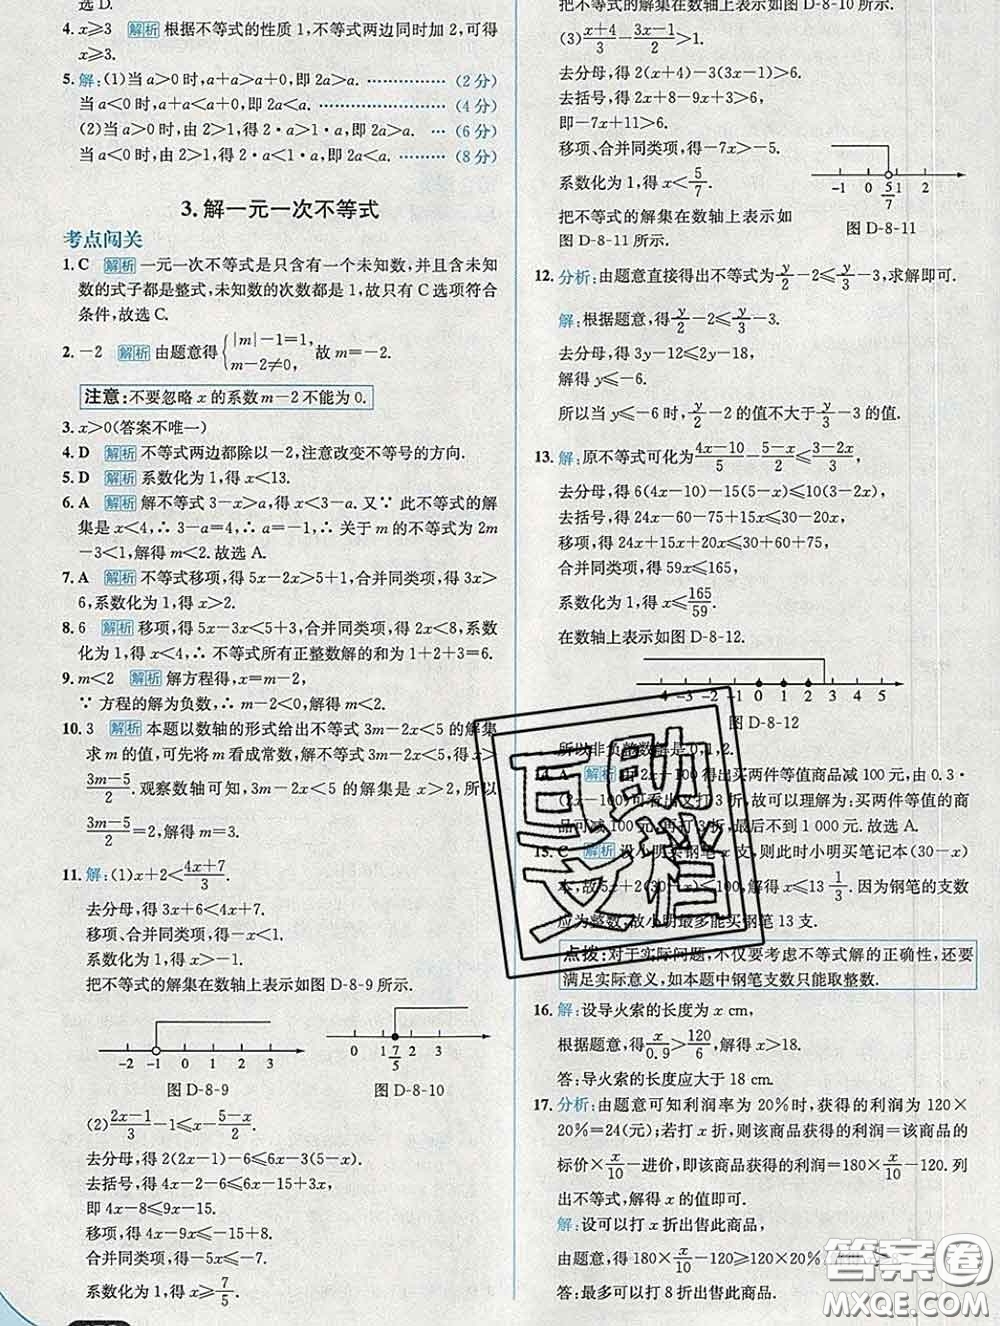 选D.
4. x≥3 解析 根据不等式的性质1,不等式两边同时加2,可得
x≥3.
5. 解:(1)当a>0时,a+a>a+0,即2a>a. …………… (2分)
当a<0时,a+a<a+0,即2a<a. …………………… (4分)
(2)当a>0时,由2>1,得2·a>1·a,即2a>a. … (6分)
当a<0时,由2>1,得2·a<1·a,即2a<a. ……… (8分)
3. 解一元一次不等式
考点闯关
1. C 解析 一元一次不等式是只含有一个未知数,并且含未知
数的式子都是整式,未知数的次数都是1,故只有C选项符合
条件,故选C.
2. -2 解析 由题意得{|m|-1=1, m-2≠0, 故m=-2.
注意:不要忽略x的系数m-2不能为0.
3. x>0(答案不唯一)
4. D 解析 不等式两边都除以-2,注意改变不等号的方向.
5. D 解析 系数化为1,得x<13.
6. A 解析 解不等式3-x>a,得x<3-a.又∵此不等式的解
集是x<4,∴3-a=4,∴a=-1,∴关于m的不等式为2m
-3<1,解得m<2.故选A.
7. A 解析 不等式移项,得5x-2x>5+1,合并同类项,得3x>
6,系数化为1,得x>2.
8. 6 解析 移项,得5x-3x<5+3,合并同类项,得2x<8,系数
化为1,得x<4,∴不等式所有正整数解的和为1+2+3=6.
9. m<2 解析 解方程得,x=m-2,
∵方程的解为负数,∴m-2<0,解得m<2.
10. 3 解析 本题以数轴的形式给出不等式3m-2x<5的解集
求m的值,可先将m看成常数,解不等式3m-2x<5,得x>
(3m-5)/2.观察数轴可知,3m-2x<5的解集是x>2,所以
(3m-5)/2=2,解得m=3.
11. 解:(1)x+2<(4x+7)/3.
去分母,得3x+6<4x+7.
移项、合并同类项,得-x<1.
系数化为1,得x>-1.
把不等式的解集在数轴上表示如图D-8-9所示.
-2 -1 0 1 2 3
图D-8-9
0 1 7/5 2 3
图D-8-10
(2)(2x-1)/3-1≤x-(5-x)/2.
去分母,得2(2x-1)-6≤6x-3(5-x).
去括号,得4x-2-6≤6x-15+3x,
即4x-8≤9x-15.
移项,得4x-9x≤-15+8.
合并同类项,得-5x≤-7.
系数化为1,得x≥7/5.
把不等式的解集在数轴上表示如图D-8-10所示.
(3)(x+4)/3-(3x-1)/2>1.
去分母,得2(x+4)-3(3x-1)>6.
去括号,得2x+8-9x+3>6.
即-7x+11>6.
移项、合并同类项,得-7x>-5.
系数化为1,得x<5/7.
把不等式的解集在数轴上表示如
图D-8-11所示.
-1 0 5/7 1 2
图D-8-11
12. 分析:由题意直接得出不等式为y/2-2≤y/3-3,求解即可.
解:根据题意,得y/2-2≤y/3-3.
去分母,得3y-12≤2y-18,
解得y≤-6.
所以当y≤-6时,y/2-2的值不大于y/3-3的值.
13. 解:原不等式可化为(4x-10)/5-(5-x)/2≤(3-2x)/3,
去分母,得6(4x-10)-15(5-x)≤10(3-2x),
去括号,得24x-60-75+15x≤30-20x,
移项,得24x+15x+20x≤30+60+75,
合并同类项,得59x≤165,
系数化为1,得x≤165/59.
在数轴上表示如图D-8-12.
-4 -3 -2 -1 0 1 2 3 4 5
图D-8-12
所以非负整数解是0,1,2.
14. A 解析 由2x-100得出买两件等值商品减100元,由0.3·
(2x-100)可看出又打3折,故可以理解为:买两件等值的商
品可减100元,再打3折,最后不到1 000元.故选A.
15. C 解析 设小明买钢笔x支,则此时小明买笔记本(30-x)
本,故5x+2(30-x)≤100,解得x≤13 1/3.因为钢笔的支数
应为整数,故小明最多能买钢笔13支.
点拨:对于实际问题,不仅要考虑不等式解的正确性,还要
满足实际意义,如本题中钢笔支数只能取整数.
16. 解:设导火索的长度为x cm,
根据题意,得x/0.9>120/6,解得x>18.
答:导火索的长度应大于18 cm.
17. 分析:由题意可知利润率为20%时,获得的利润为120×
20%=24(元);若打x折,则该商品获得的利润=该商品的
标价×x/10-进价,即该商品获得的利润=180×x/10-120.列
出不等式,解得x的值即可.
解:设可以打x折出售此商品,
由题意,得180×x/10-120≥120×20%,
答:最多可以打8折出售此商品.
互助
文档
答案圈
MXQE.COM